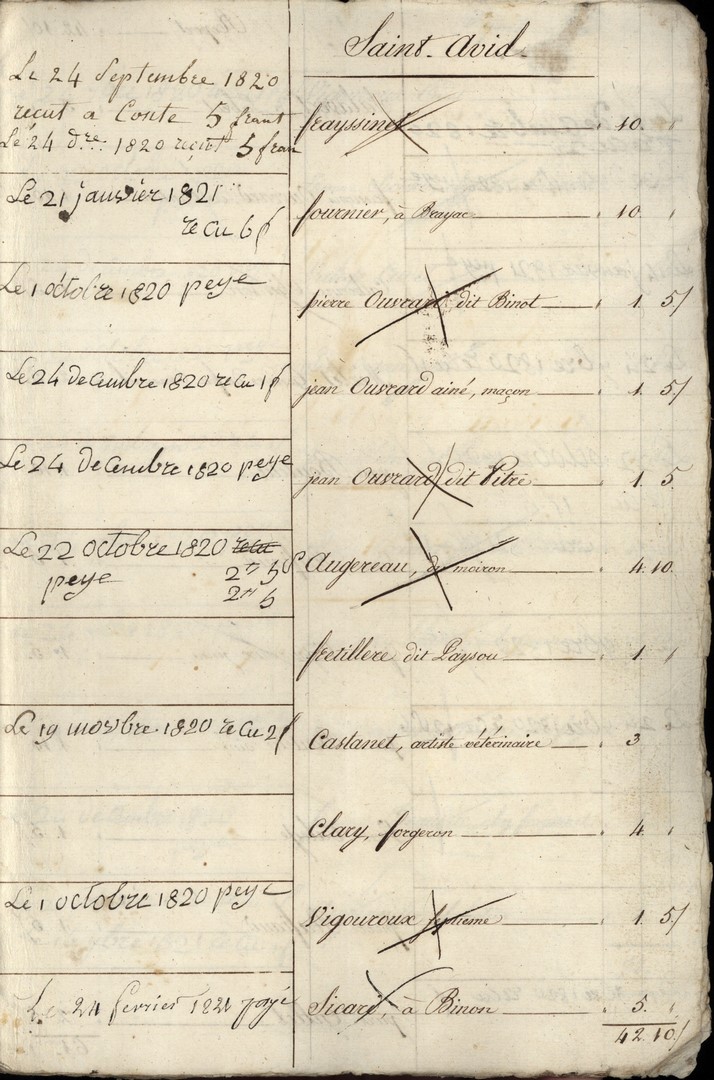 Saint-Avid.
Le 24 Septembre 1820
reçut a Conte 5 frant
Le 24 d.re 1820 reçut 5 fran
frayssinet 10.
Le 21 janvier 1821
re cu 6 f
fournier, à Brayac 10.
Le 1 octobre 1820 peye
pierre Ouvrard dit Binot 1. 5/
Le 24 decembre 1820 re cu 1 f
jean Ouvrard ainé, maçon 1. 5/
Le 24 decembre 1820 peye
jean Ouvrard dit Pitre 1. 5.
Le 22 octobre 1820 recu
peye 2 5
2 5
Augereau, de moiron 4. 10.
fretillere dit Paysou 1.
Le 19 movbre 1820 re Cu 2 f
Castanet, artiste vétérinaire 3
Clary, forgeron 4.
Le 1 octobre 1820 peye
Vigouroux 1. 5/
Le 24 fevrier 1821 payé
Sicard, à Binon 5.
42. 10/